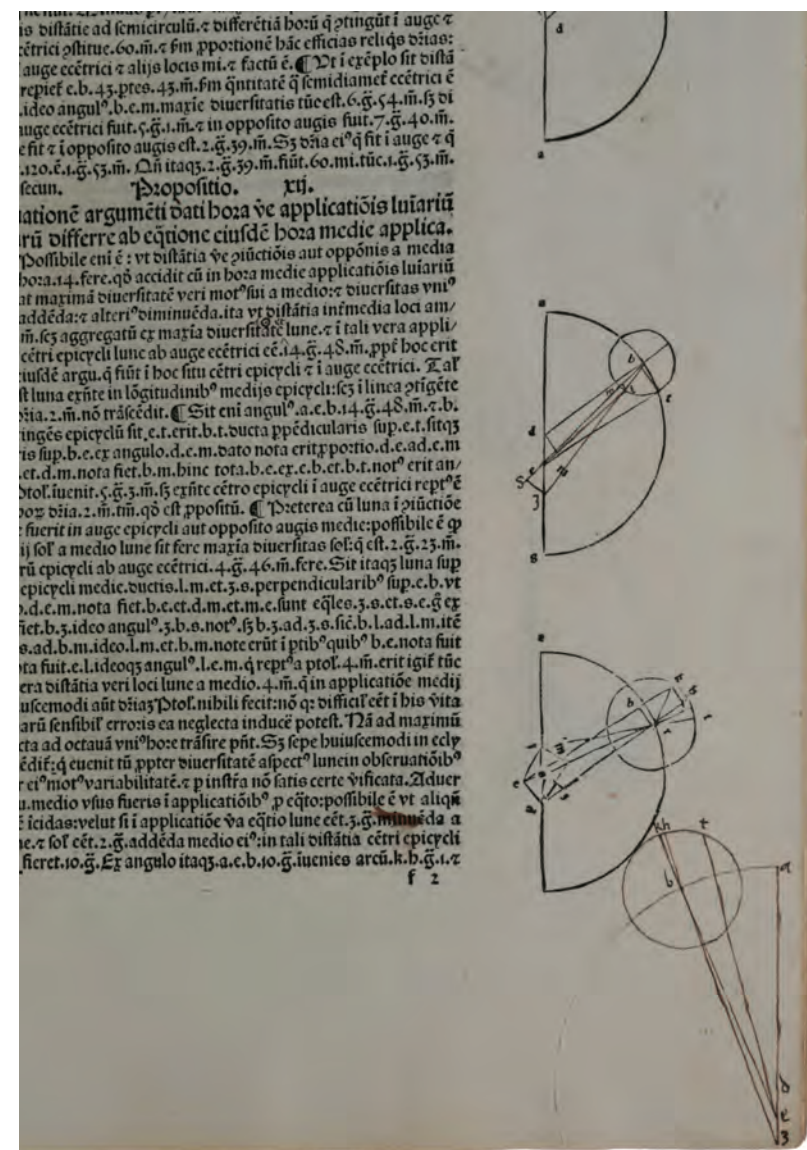 is distãtie ad semicirculũ.⁊ differẽtiã hoꝛũ q̃ ꝯtingũt ĩ auge ⁊
cẽtrici ꝯstitue.60.m̃.⁊ ẜm ꝓpoꝛtionẽ hãc efficias reliq̃s dr̃ias:
auge eccẽtrici ⁊ alijs locis mi.⁊ factũ ẽ.¶Ut ĩ exẽplo sit distã
repiet̃ e.b.43.ptes.43.m̃.ẜm q̃ntitatẽ q̃ semidiamet̃ eccẽtrici ẽ
.ideo angulꝰ.b.e.m.maxie diuersitatis tũc est.6.g̃.54.m̃.sꝫ di
auge eccẽtrici fuit.5.g̃.1.m̃.⁊ in opposito augis fuit.7.g̃.40.m̃.
e fit ⁊ ĩ opposito augis est.2.g̃.39.m̃.Sꝫ dr̃ia eiꝰ q̃ fit ĩ auge ⁊ q̃
.120.ẽ.1.g̃.53.m̃. Qñ itaqꝫ.2.g̃.39.m̃.fiũt.60.mi.tũc.1.g̃.53.m̃.
secun. Pꝛopositio. xij.
ationẽ argumẽti dati hoꝛa ṽe applicatiõis luĩariũ
rũ differre ab eq̃tione eiusdẽ hoꝛa medie applica.
Possibile eni ẽ : vt distãtia ṽe ꝯiũctiõis aut oppõnis a media
hoꝛa.14.fere.qd̃ accidit cũ in hoꝛa medie applicatiõis luĩariũ
at maximã diuersitatẽ veri motꝰ sui a medio:⁊ diuersitas vniꝰ
addẽda:⁊ alteriꝰ diminuẽda.ita vt distãtia int̃media loci am/
m̃.scꝫ aggregatũ ex maxĩa diuersitatẽ lune.⁊ ĩ tali vera appli/
cẽtri epicycli lune ab auge eccẽtrici eẽ.14.g̃.48.m̃.ꝓpt̃ hoc erit
iusdẽ argu.q̃ fiũt ĩ hoc situ cẽtri epicycli ⁊ ĩ auge eccẽtrici. Tal̃
st luna exñte in lõgitudinibꝰ medijs epicycli:scꝫ ĩ linea ꝯtĩgẽte
dr̃ia.2.m̃.nõ trãscẽdit.¶Sit eni angulꝰ.a.e.b.14.g̃.48.m̃.⁊.b.
ingẽs epicyclũ sit.e.t.erit.b.t.ducta ꝑpẽdicularis sup.e.t.sitqꝫ
is sup.b.e.ex angulo.d.e.m.dato nota erit ꝓpoꝛtio.d.e.ad.e.m
.et.d.m.nota fiet.b.m.hinc tota.b.e.ex.e.b.et.b.t.notꝰ erit an/
ptol̃.iuenit.5.g̃.3.m̃.sꝫ exñte cẽtro epicycli ĩ auge eccẽtrici reptꝰ ẽ
hoꝝ dr̃ia.2.m̃.tm̃.qd̃ est ꝓpositũ. ¶ Pꝛeterea cũ luna ĩ ꝯiũctiõe
fuerit in auge epicycli aut opposito augis medie:possibile ẽ ꝙ
ij sol̃ a medio lune sit fere maxĩa diuersitas sol̃:q̃ est.2.g̃.23.m̃.
rũ epicycli ab auge eccẽtrici.4.g̃.46.m̃.fere.Sit itaqꝫ luna sup
epicycli medie.ductis.l.m.et.3.s.perpendicularibꝰ sup.e.b.vt
.d.e.m.nota fiet.b.e.et.d.m.et.m.e.sunt eq̃les.3.s.et.s.e.g̃ ex
fiet.b.3.ideo angulꝰ.3.b.s.notꝰ.sꝫ b.3.ad.3.s.sic̃.b.l.ad.l.m.itẽ
s.ad.b.m.ideo.l.m.et.b.m.note erũt ĩ ptibꝰ quibꝰ b.e.nota fuit
ta fuit.e.l.ideoqꝫ angulꝰ.l.e.m.q̃ reptꝰ a ptol̃.4.m̃.erit igit̃ tũc
era distãtia veri loci lune a medio.4.m̃.q̃ in applicatiõe medij
uscemodi aũt dr̃iaꝫ Ptol̃.nihili fecit:nõ qꝛ difficil̃ eẽt ĩ his ṽita
arũ sensibil̃ erroꝛis ea neglecta inducẽ potest.Nã ad maximũ
cta ad octauã vniꝰ hoꝛe trãsire pñt.Sꝫ sepe huiuscemodi in ecly
ẽdit̃:q̃ euenit tũ ꝓpter diuersitatẽ aspectꝰ lune in obseruatiõibꝰ
r eiꝰ motꝰ variabilitatẽ.⁊ p instr̃a nõ satis certe ṽificata.Aduer
u.medio vsus fueris ĩ applicatiõibꝰ ꝓ eq̃to:possibile ẽ vt aliqñ
ẽ ĩcidas:velut si ĩ applicatiõe ṽa eq̃tio lune eẽt.3.g̃.minuẽda a
ne.⁊ sol̃ eẽt.2.g̃.addẽda medio eiꝰ:in tali distãtia cẽtri epicycli
fieret.10.g̃.Ex angulo itaqꝫ.a.e.b.10.g̃.iuenies arcũ.k.b.g̃.1.⁊
f 2
d
a
b
t
d
e
s
3
g
b
kh
t
a
b
d
e
3